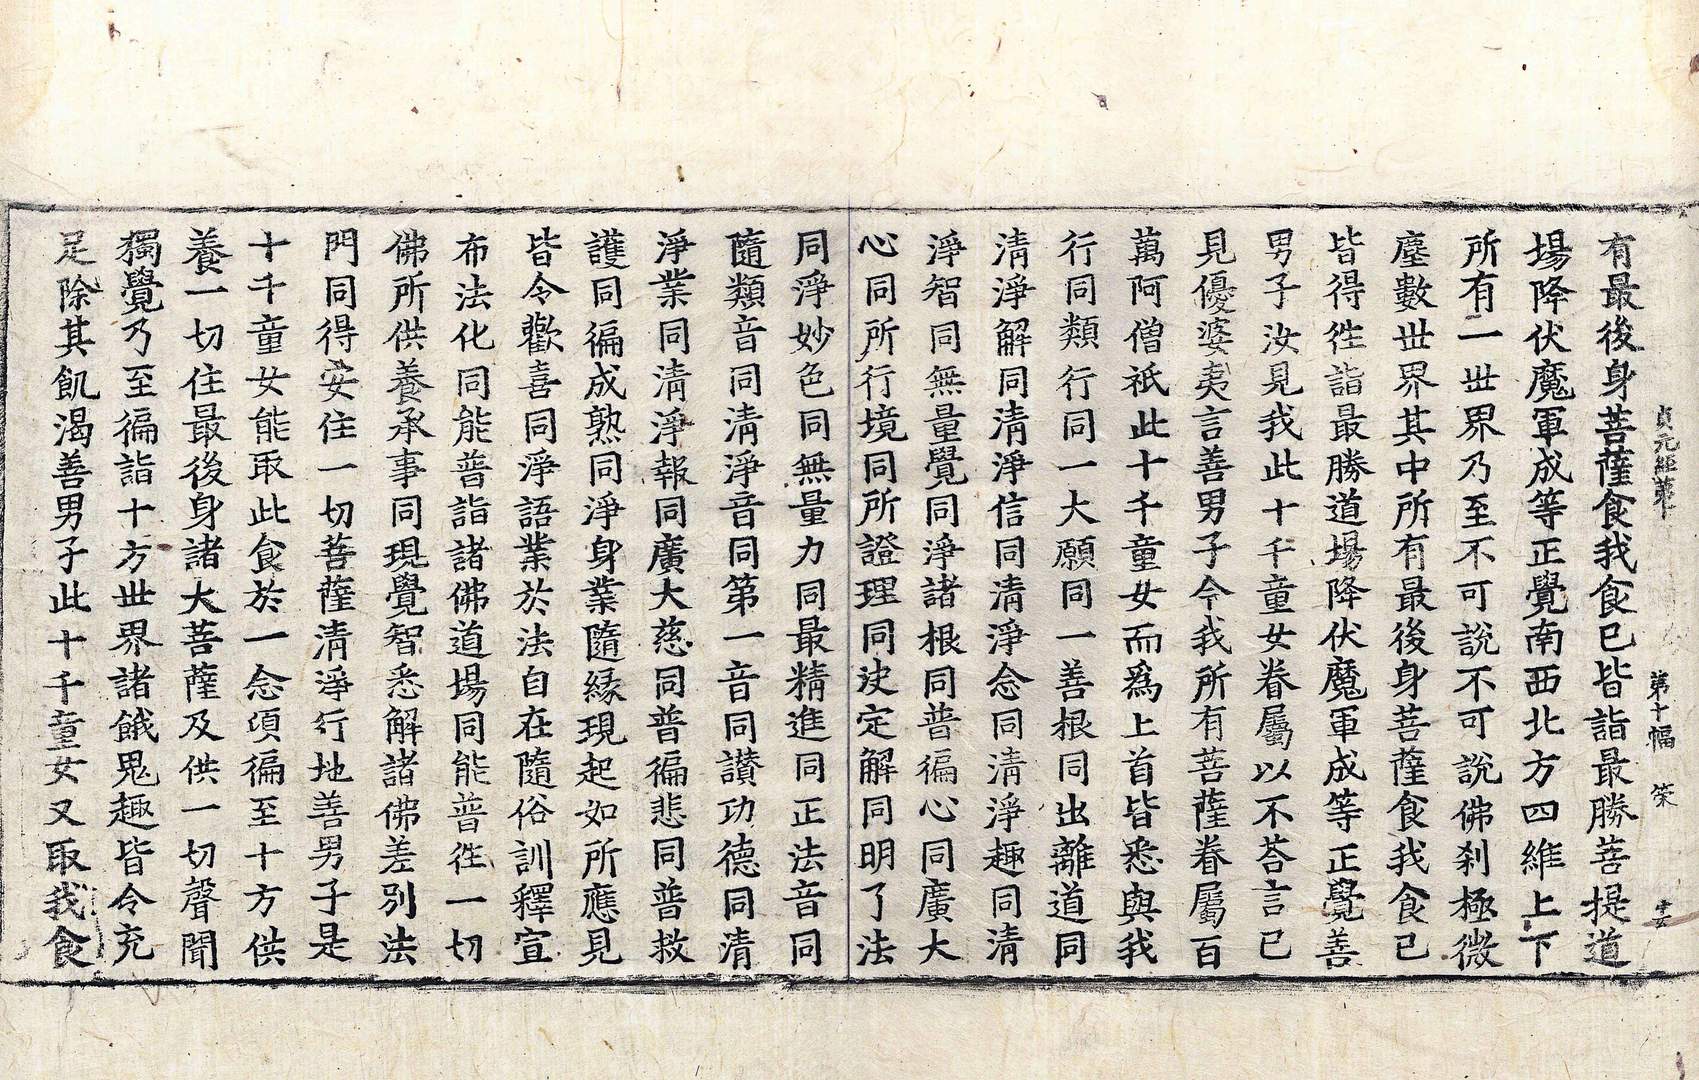 貞元經第十 第十幅 十五 榮
有最後身菩薩食我食已皆詣最勝菩提道
場降伏魔軍成等正覺南西北方四維上下
所有一世界乃至不可說不可說佛刹極微
塵數世界其中所有最後身菩薩食我食已
皆得徃詣最勝道場降伏魔軍成等正覺善
男子汝見我此十千童女眷屬以不荅言已
見優婆夷言善男子令我所有菩薩眷屬百
萬阿僧祇此十千童女而爲上首皆悉與我
行同類行同一大願同一善根同出離道同
淸淨解同淸淨信同淸淨念同淸淨趣同淸
淨智同無量覺同淨諸根同普徧心同廣大
心同所行境同所證理同决定解同明了法
同淨妙色同無量力同最精進同正法音同
隨類音同淸淨音同第一音同讃功德同淸
淨業同淸淨報同廣大慈同普徧悲同普救
護同徧成熟同淨身業隨緣現起如所應見
皆令歡喜同淨語業於法自在隨俗訓釋宣
布法化同能普詣諸佛道場同能普徃一切
佛所供養承事同現覺智悉解諸佛差別法
門同得安住一切菩薩淸淨行地善男子是
十千童女能取此食於一念頃徧至十方供
養一切住最後身諸大菩薩及供一切聲聞
獨覺乃至徧詣十方世界諸餓鬼趣皆令充
足除其飢渴善男子此十千童女又取我食